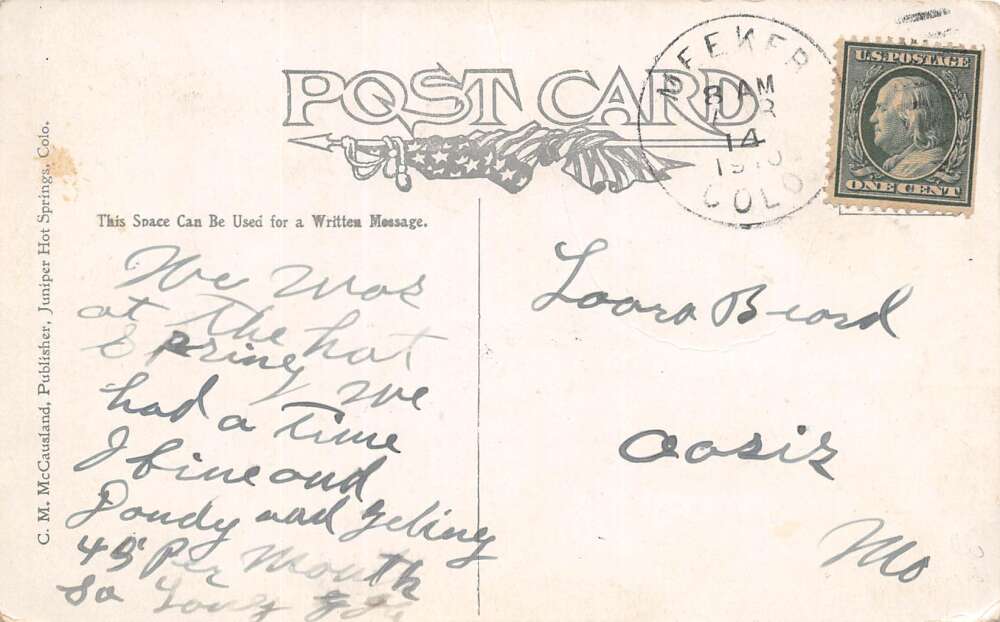 POST CARD
MEEKER
8 AM
14
1910
COLO.
U.S. POSTAGE
ONE CENT
C. M. McCausland, Publisher, Juniper Hot Springs, Colo.
This Space Can Be Used for a Written Message.
We was
at the hot
Spring we
had a time
I bine and
Dandy and geting
45 Per Month
so Long
Loora Beard
Oasis
Mo